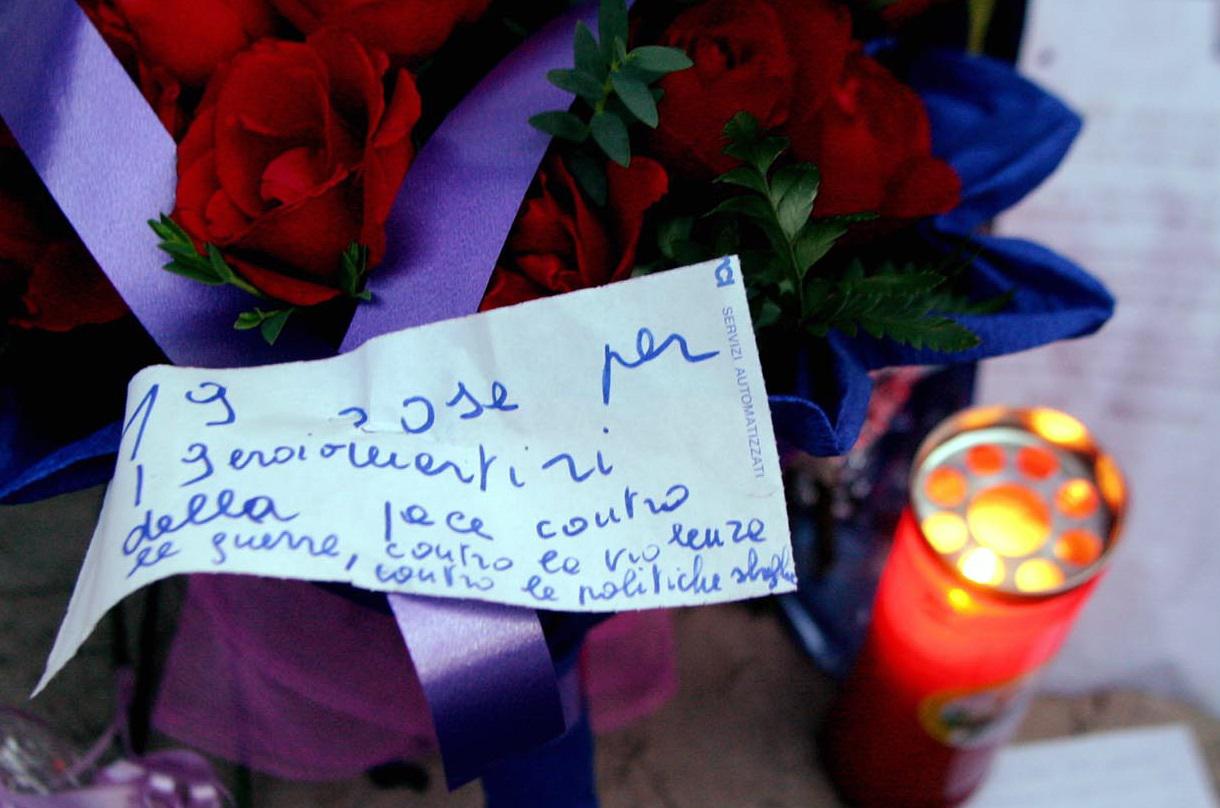 19 rose per
i 19 eroi martiri
della pace contro
le guerre, contro le violenze
contro le politiche
SERVIZI AUTOMATIZZATI